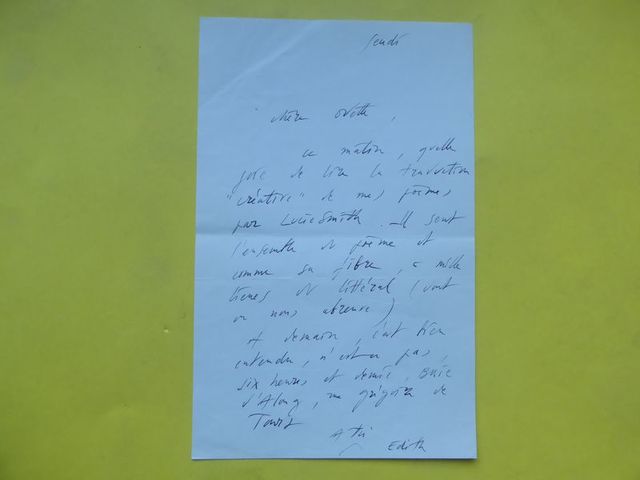 Jeudi
chère Odette,
ce matin, quelle
joie de lire la traduction
"créative" de mes poèmes
par Lucie Smith. Il sent
l'ensemble du poème et
comme sa fibre, à mille
lieues du littéral (dont
on nous abreuve)
A demain, c'est bien
entendu, n'est-ce pas,
six heures et demie, Baie
d'Along, rue Grégoire de
Tours
A toi
Edith